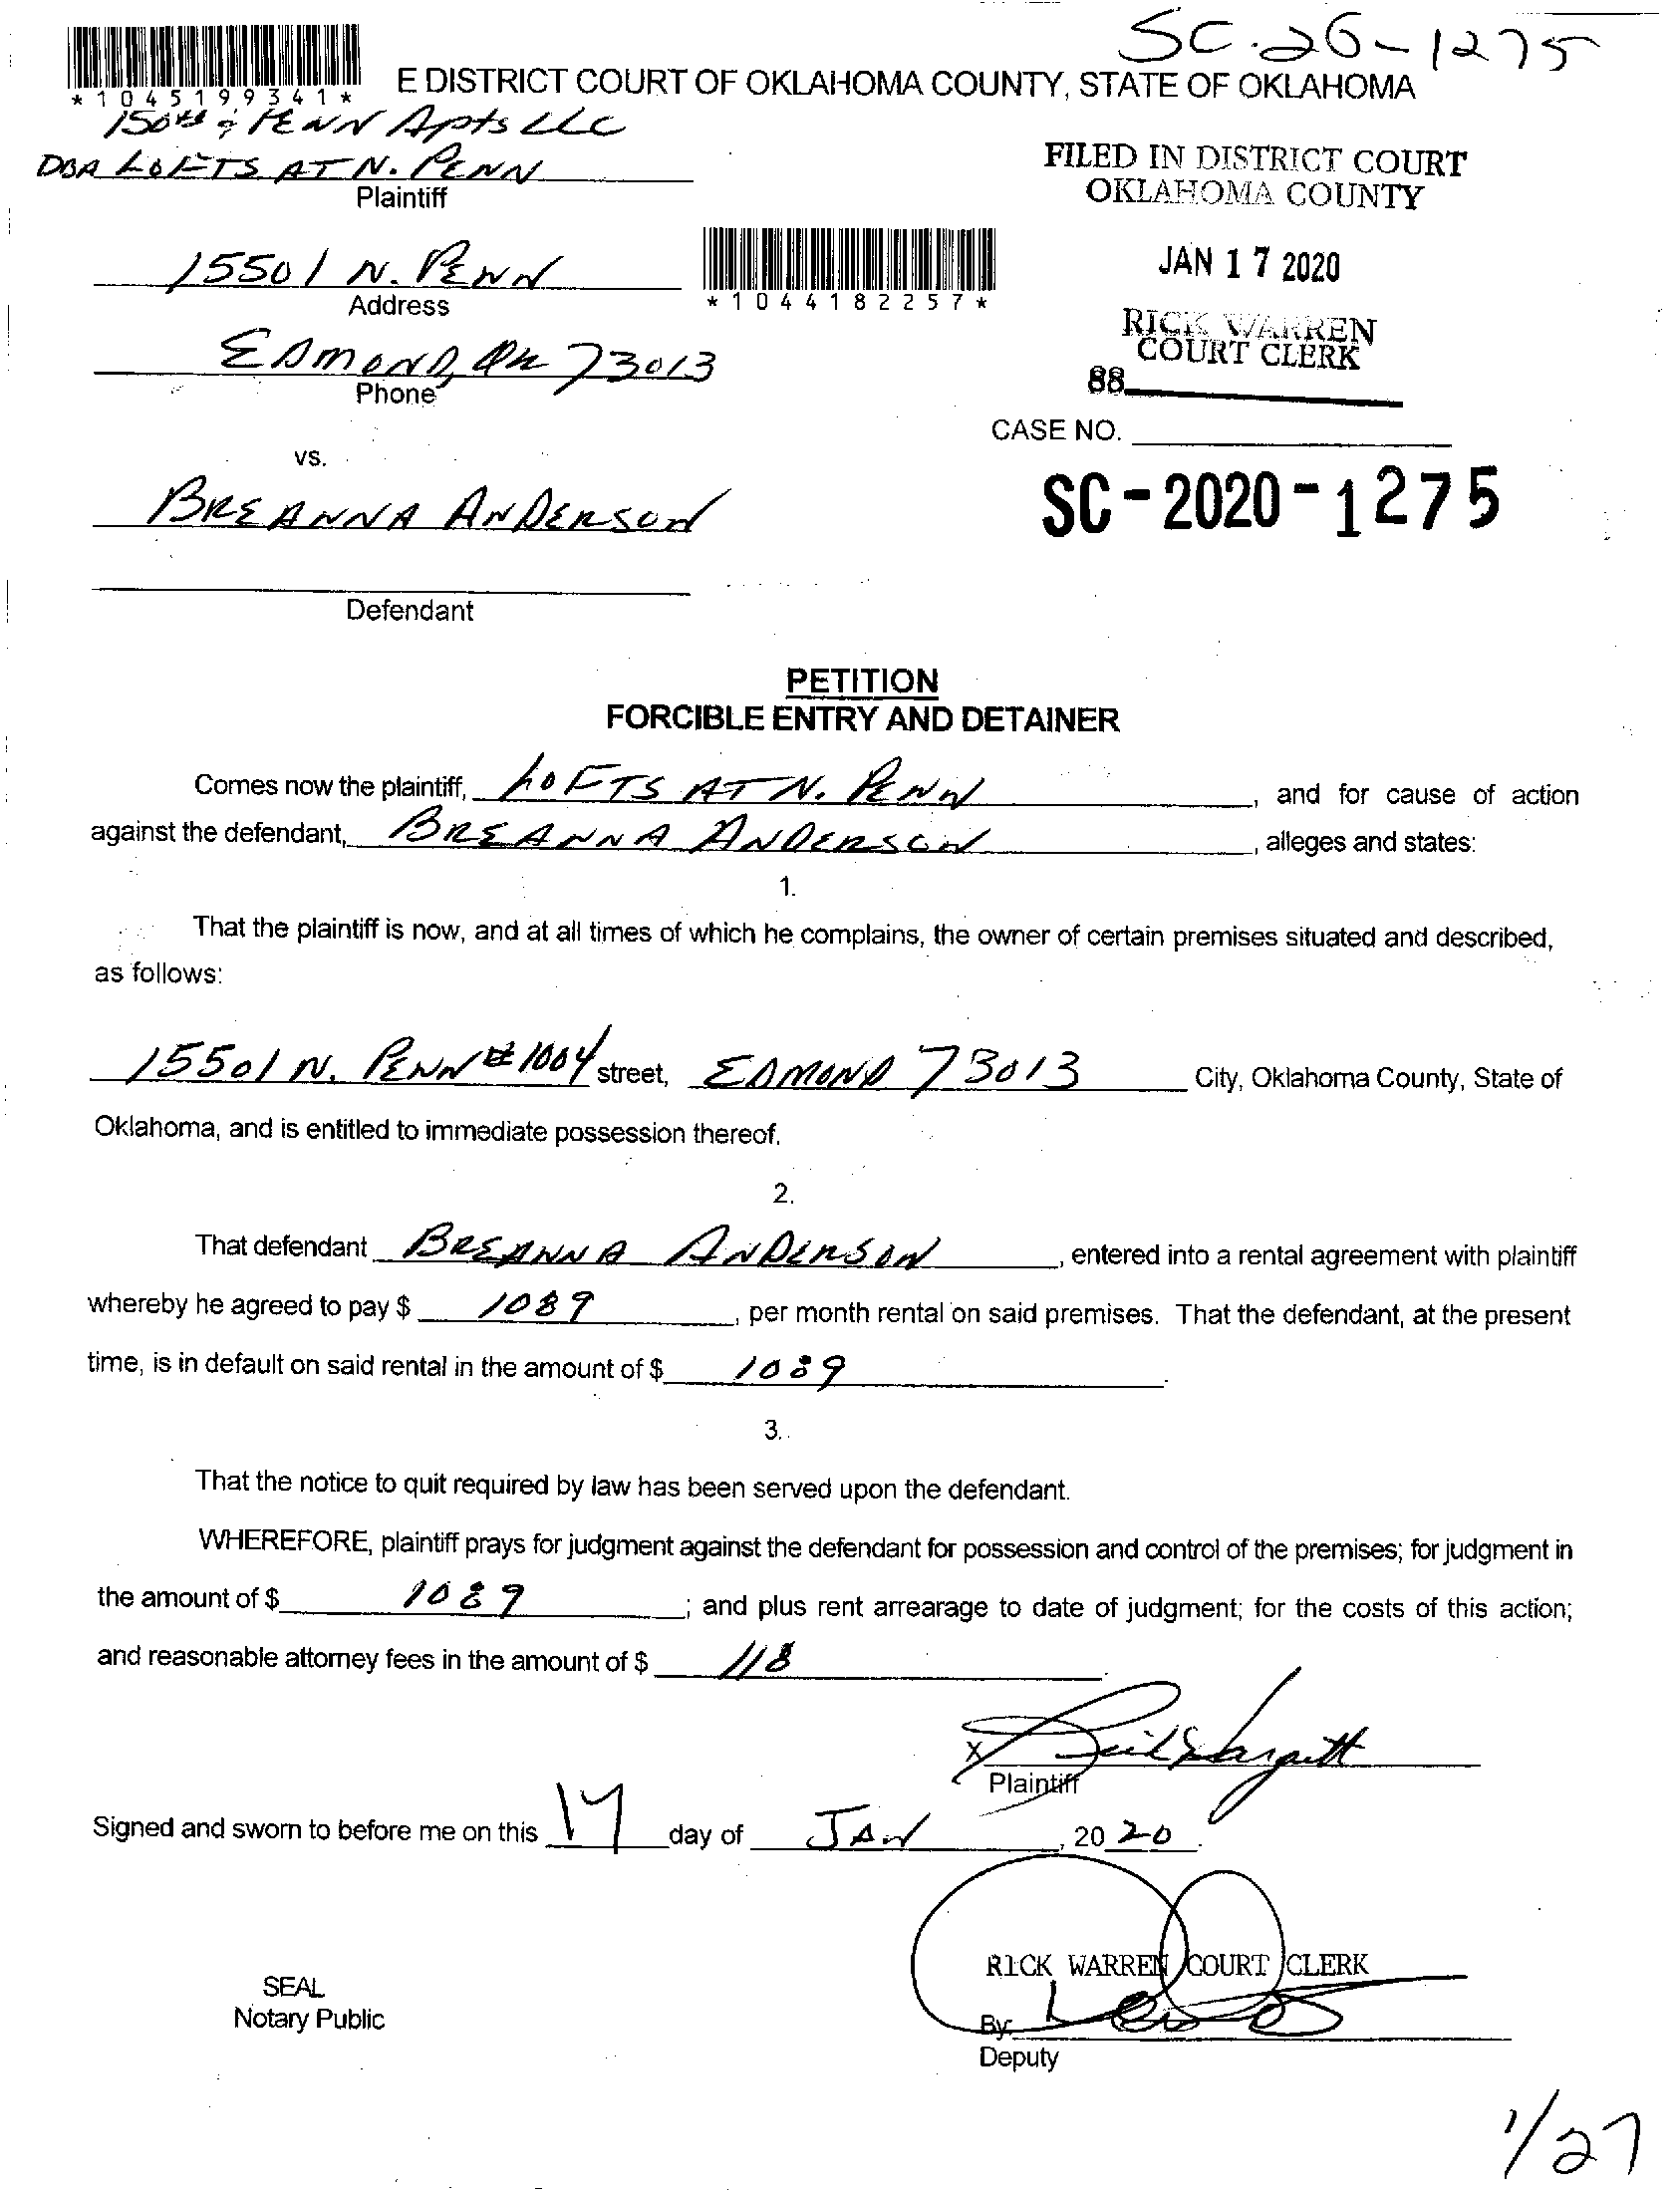 SC-20-1275
*1045199341*
E DISTRICT COURT OF OKLAHOMA COUNTY, STATE OF OKLAHOMA
150th & PENN Apts LLC
DBA LOFTS AT N. PENN
Plaintiff
FILED IN DISTRICT COURT
OKLAHOMA COUNTY
15501 N. PENN
Address
*1044182257*
JAN 17 2020
RICK WARREN
COURT CLERK
EDMOND, OK 73013
Phone
88
CASE NO.
vs.
SC-2020-1275
BREANNA ANDERSON
Defendant
PETITION
FORCIBLE ENTRY AND DETAINER
Comes now the plaintiff, LOFTS AT N. PENN, and for cause of action
against the defendant, BREANNA ANDERSON, alleges and states:
1.
That the plaintiff is now, and at all times of which he complains, the owner of certain premises situated and described,
as follows:
15501 N. PENN #1004 street, EDMOND 73013 City, Oklahoma County, State of
Oklahoma, and is entitled to immediate possession thereof.
2.
That defendant BREANNA ANDERSON, entered into a rental agreement with plaintiff
whereby he agreed to pay $ 1089, per month rental on said premises. That the defendant, at the present
time, is in default on said rental in the amount of $ 1089.
3.
That the notice to quit required by law has been served upon the defendant.
WHEREFORE, plaintiff prays for judgment against the defendant for possession and control of the premises; for judgment in
the amount of $ 1089; and plus rent arrearage to date of judgment; for the costs of this action;
and reasonable attorney fees in the amount of $ 118.
X
Plaintiff
Signed and sworn to before me on this 17 day of JAN, 20 20.
RICK WARREN COURT CLERK
SEAL
Notary Public
By:
Deputy
1/27